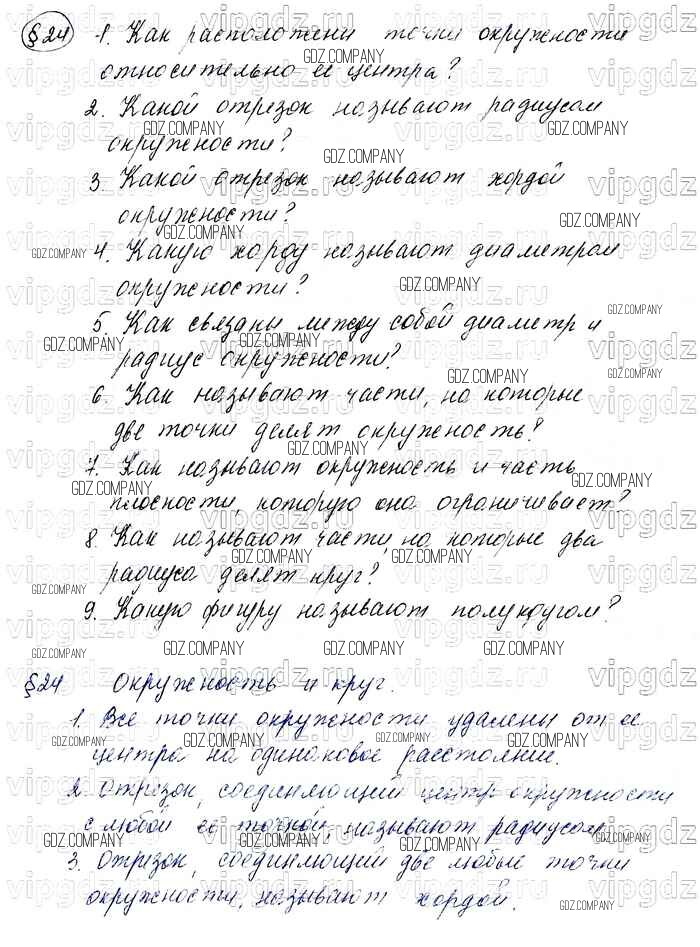 §24 1. Как расположены точки окружности
относительно её центра?
2. Какой отрезок называют радиусом
окружности?
3. Какой отрезок называют хордой
окружности?
4. Какую хорду называют диаметром
окружности?
5. Как связаны между собой диаметр и
радиус окружности?
6. Как называют части, на которые
две точки делят окружность?
7. Как называют окружность и часть
плоскости, которую она ограничивает?
8. Как называют части, на которые два
радиуса делят круг?
9. Какую фигуру называют полукругом?
§24 Окружность и круг.
1. Все точки окружности удалены от её
центра на одинаковое расстояние.
2. Отрезок, соединяющий центр окружности
с любой её точкой, называют радиусом.
3. Отрезок, соединяющий две любые точки
окружности, называют хордой.